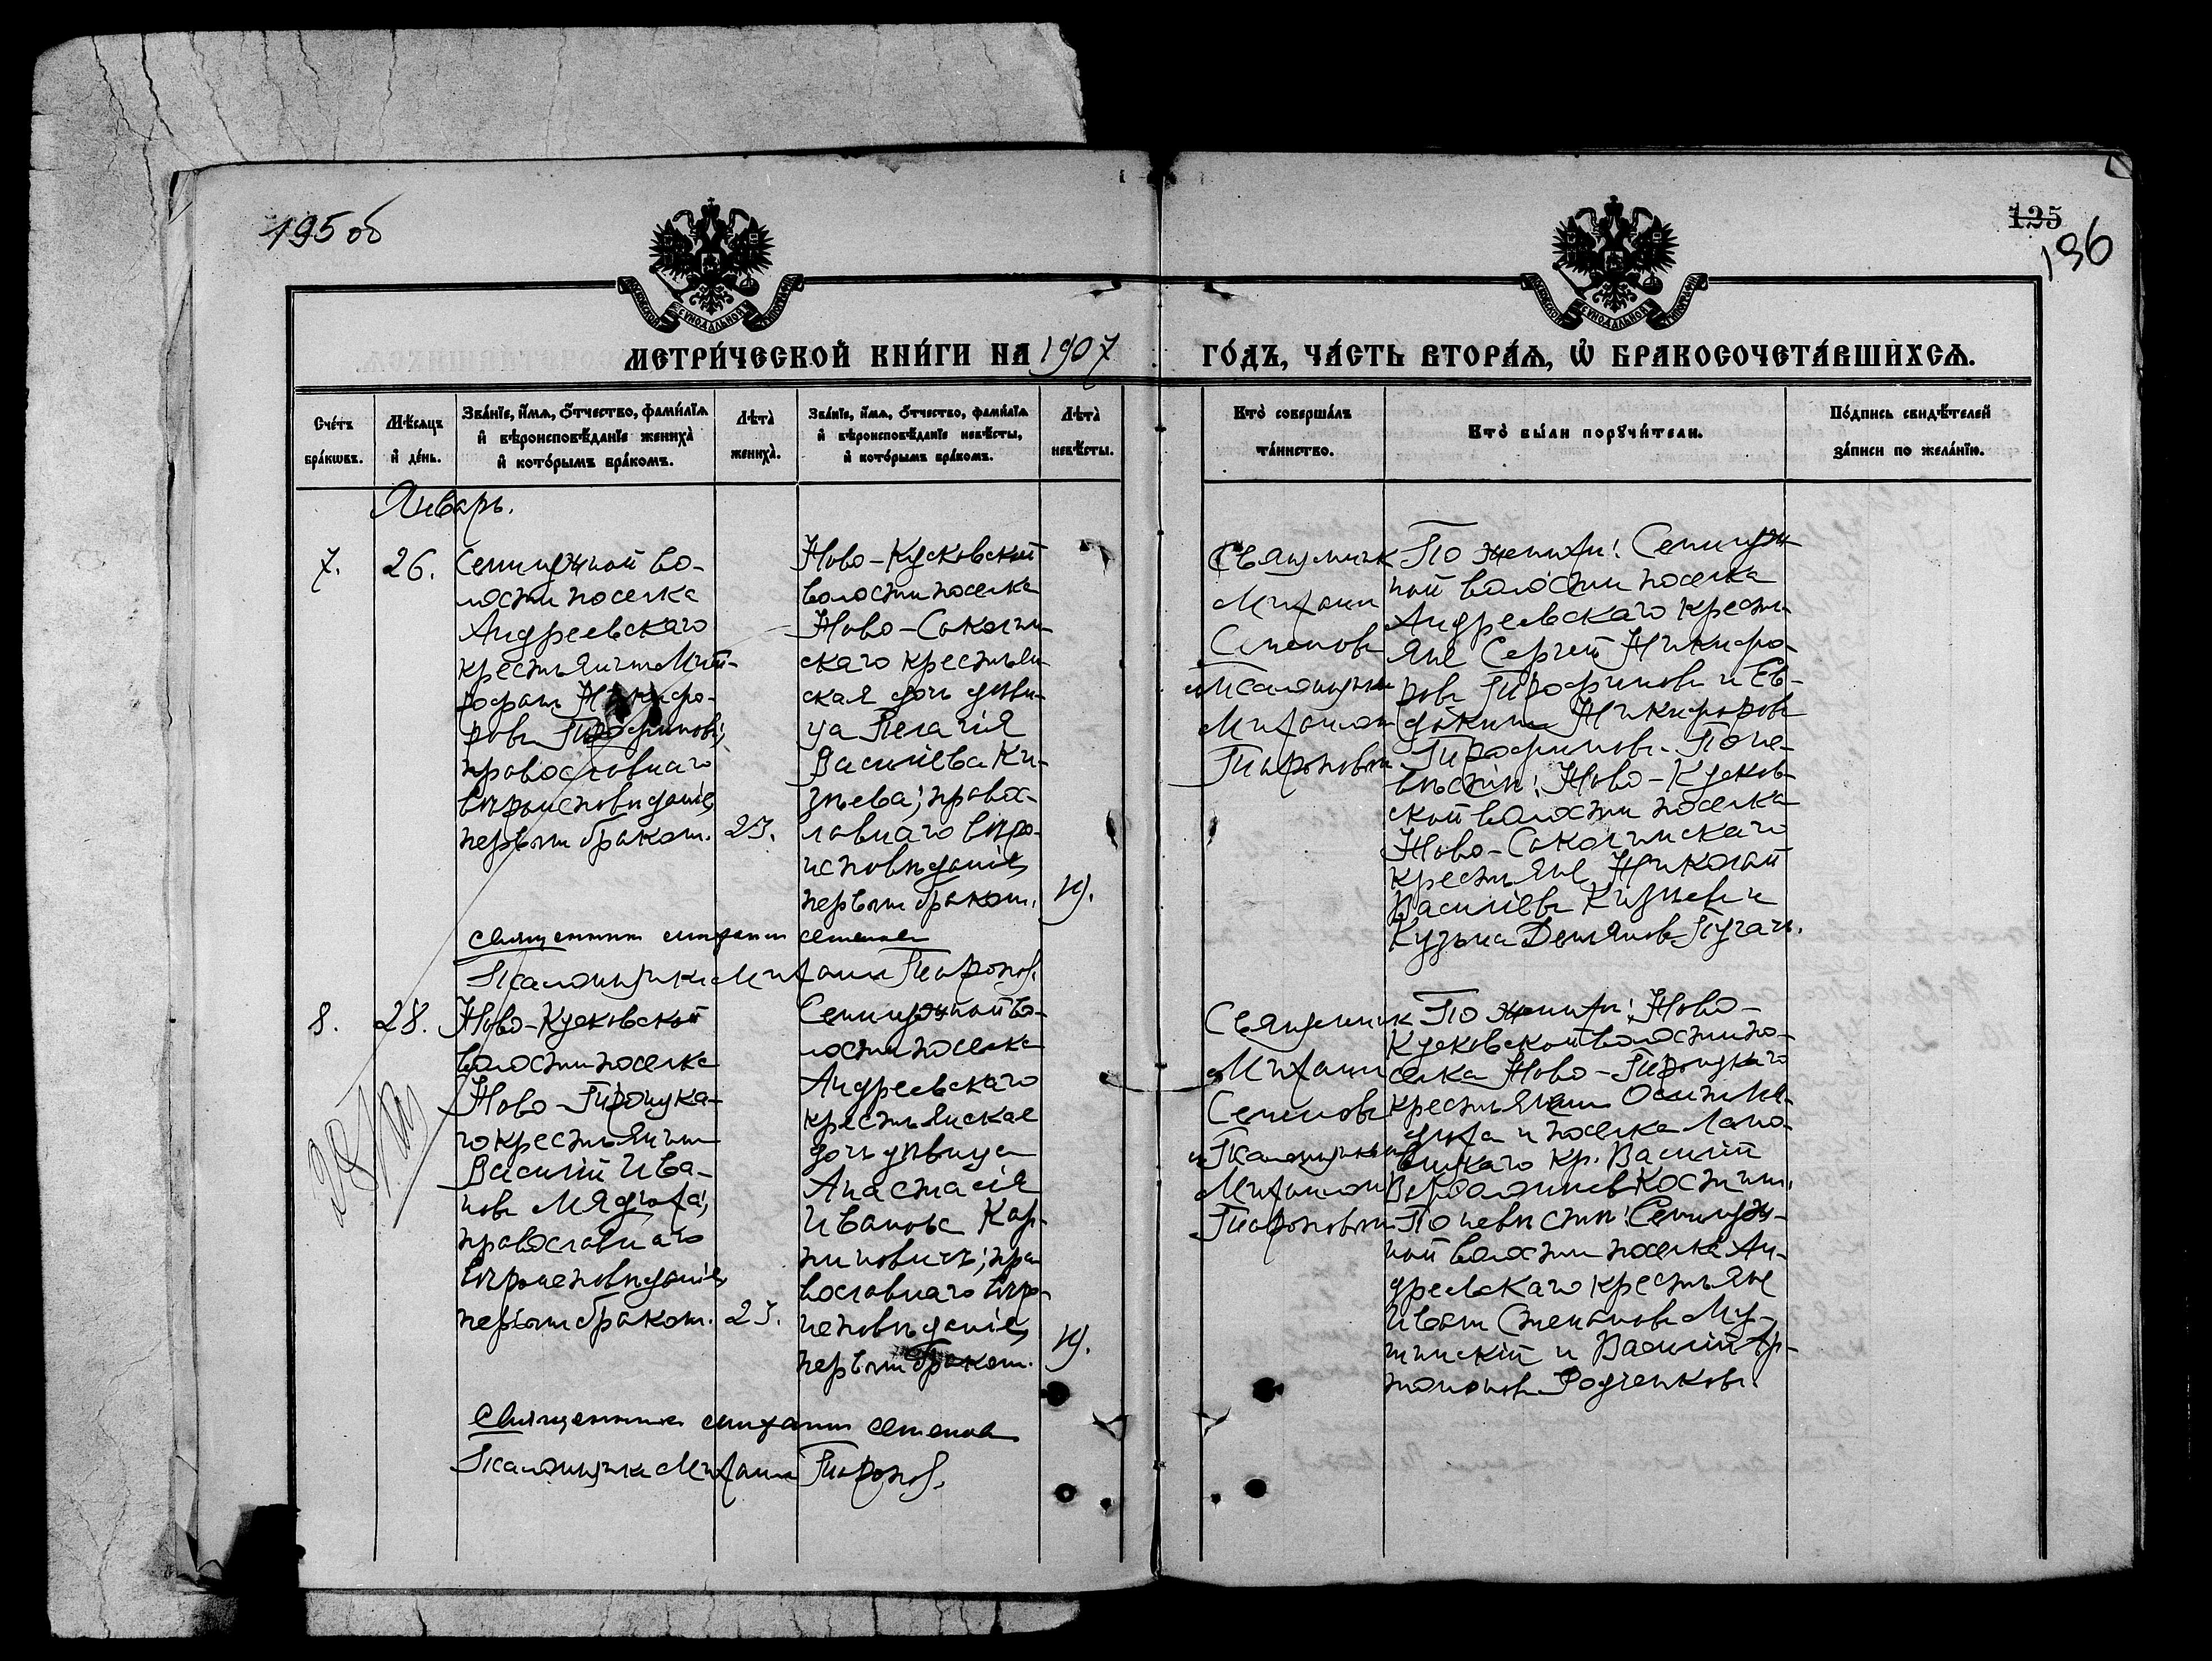 195 об
125
196
МЕТРИ́ЧЕСКОЙ КНИ́ГИ НА 1907 ГО́ДЪ, ЧА́СТЬ ВТОРА́Я, Ѡ҆ БРАКОСОЧЕТА́ВШИХСЯ.
Сче́тъ бра́кѡвъ.
Мѣ́сяцъ и҆ де́нь.
Зва́нїе, и҆́мя, ѻ҆́тчество, фами́лїя
и҆ вѣроисповѣ́данїе жениха̀
и҆ кото́рымъ бра́комъ.
Лѣ́та̀ жениха̀.
Зва́нїе, и҆́мя, ѻ҆́тчество, фами́лїя
и҆ вѣроисповѣ́данїе невѣ́сты,
и҆ кото́рымъ бра́комъ.
Лѣ́та̀ невѣ́сты.
Кто̀ соверша́лъ
та́инство.
Кто̀ бы́ли порꙋчи́тели.
По́дпись свидѣ́телей
за́писи по жела́нїю.
Январь.
7.
26.
Семилужной во-
лости поселка
Андреевскаго
крестьянинъ Мит-
рофанъ Никифо-
ровъ Трофимовъ;
православнаго
вѣроисповѣданія,
первымъ бракомъ.
23.
Ново-Кусковской
волости поселка
Ново-
скаго крестьян-
ская дочь дѣви-
ца Пелагія
Василіева Ки-
зѣева; правос-
лавнаго вѣро-
исповѣданія,
первымъ бракомъ.
19.
Священникъ
Михаилъ
Семеновъ
и Псаломщикъ
Михаилъ
По женихѣ: Семилуж-
ной волости поселка
Андреевскаго кресть-
яне Сергей Никифо-
ровъ Трофимовъ и Ев-
докимъ Никифоровъ
Трофимовъ. По не-
вѣстѣ: Ново-Кусков-
ской волости поселка
Ново-
крестьяне Николай
Василіевъ Кизѣевъ и
Кузьма Демяновъ Пугачъ.
Священникъ Михаилъ Семеновъ
Псаломщикъ Михаилъ
8.
28.
Ново-Кусковской
волости поселка
Ново-Троицка-
го крестьянинъ
Василій Ива-
новъ Мядюха;
православнаго
вѣроисповѣданія
первымъ бракомъ.
23.
Семилужной во-
лости поселка
Андреевскаго
крестьянская
дочь дѣвица
Анастасія
Иванова Кар-
пиновичъ; пра-
вославнаго вѣро-
исповѣданія,
первымъ бракомъ.
19.
Священникъ
Михаилъ
Семеновъ
и Псаломщикъ
Михаилъ
По женихѣ: Ново-
Кусковской волости по-
селка Ново-Троицкаго
крестьянинъ Осипъ Мя-
дюха и поселка
кр. Василій
По невѣстѣ: Семилуж-
ной волости поселка Ан-
дреевскаго крестьяне
Иванъ Степановъ
и Василій
Родченковъ.
Священникъ Михаилъ Семеновъ
Псаломщикъ Михаилъ